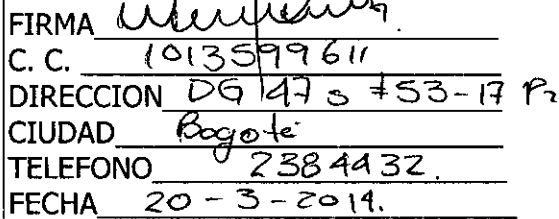 FIRMA
C. C. 1013599611
DIRECCION DG 47 s #53-17 P2
CIUDAD Bogotá
TELEFONO 2384432.
FECHA 20-3-2014.